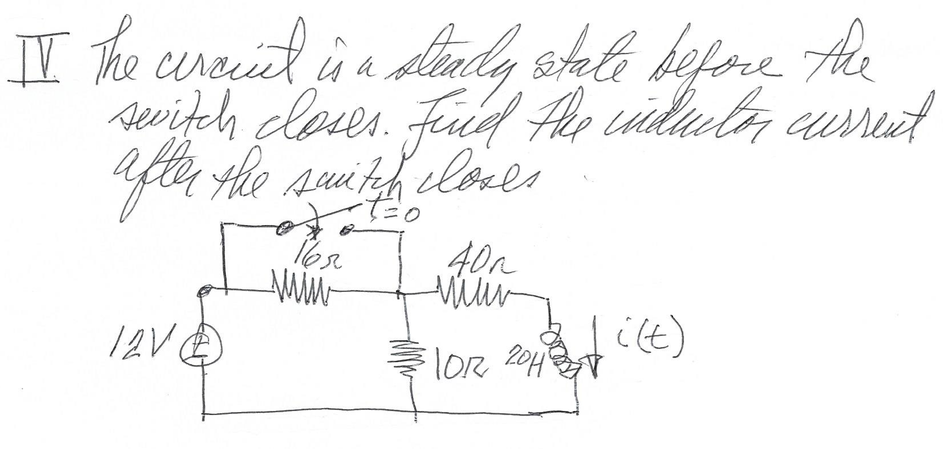 IV. The circuit is a steady state before the
switch closes. Find the inductor current
after the switch closes
t=0
16Ω
40Ω
12V
10Ω
20H
i(t)